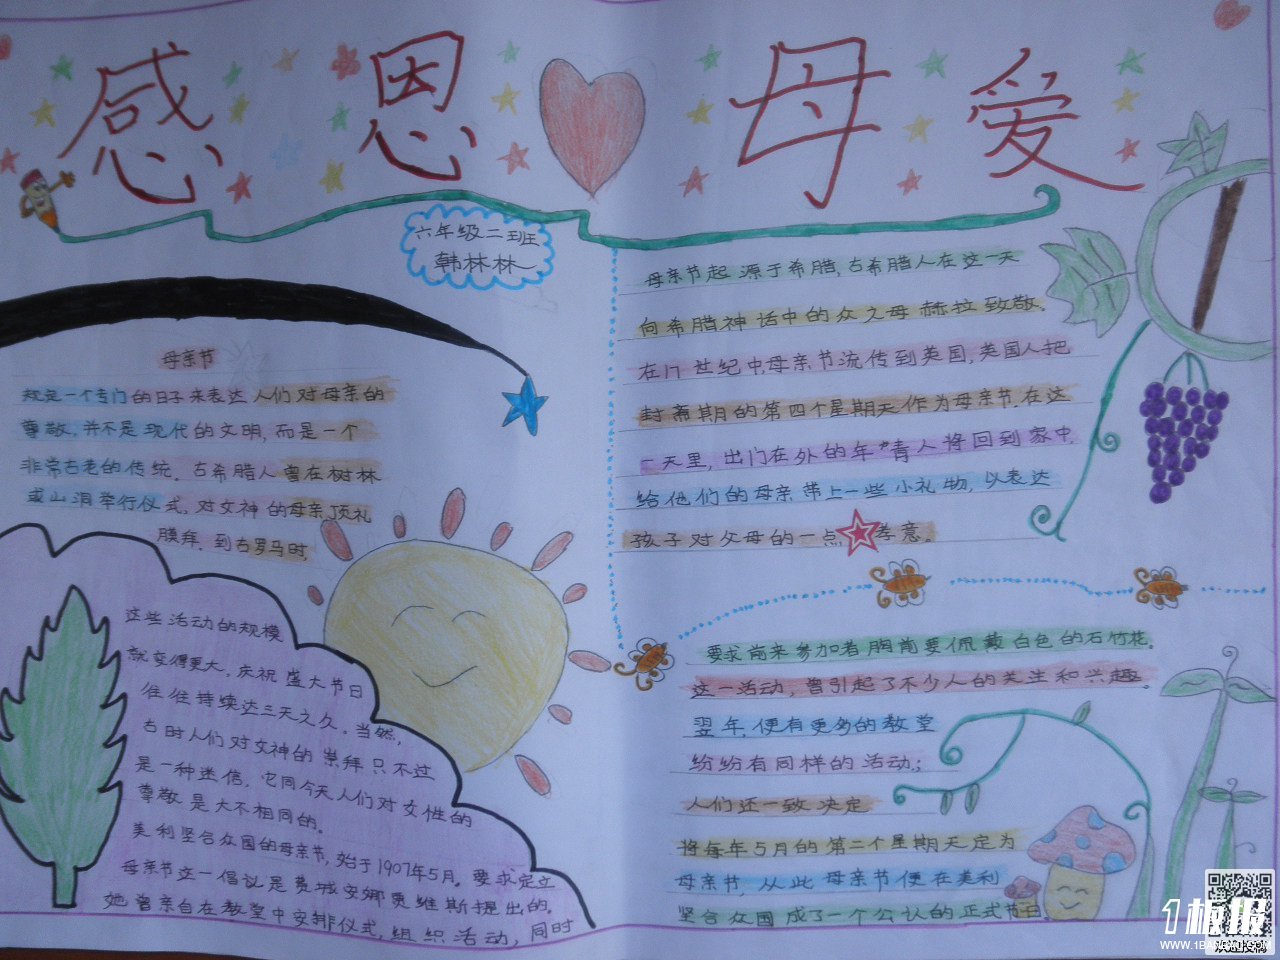 感恩母爱
六年级二班
韩林林
母亲节
规定一个专门的日子来表达人们对母亲的
尊敬,并不是现代的文明,而是一个
非常古老的传统。古希腊人曾在树林
或山洞举行仪式,对女神的母亲顶礼
膜拜。到古罗马时,
这些活动的规模
就变得更大,庆祝盛大节日
往往持续达三天之久。当然,
古时人们对女神的崇拜只不过
是一种迷信,它同今天人们对女性的
尊敬是大不相同的。
美利坚合众国的母亲节,始于1907年5月。要求定立
母亲节这一倡议是费城安娜贾维斯提出的。
她曾亲自在教堂中安排仪式,组织活动,同时
母亲节起源于希腊,古希腊人在这一天
向希腊神话中的众之母赫拉致敬。
在17世纪中,母亲节流传到英国,英国人把
封斋期的第四个星期天作为母亲节。在这
一天里,出门在外的年轻人将回到家中,
给他们的母亲带上一些小礼物,以表达
孩子对父母的一点孝意。
要求前来参加者胸前要佩戴白色的石竹花。
这一活动,曾引起了不少人的关注和兴趣。
翌年,便有更多的教堂
纷纷有同样的活动;
人们还一致决定
将每年5月的第二个星期天定为
母亲节,从此母亲节便在美利
坚合众国成了一个公认的正式节日。
1板报
WWW.1BANBAO.COM
欢迎投稿